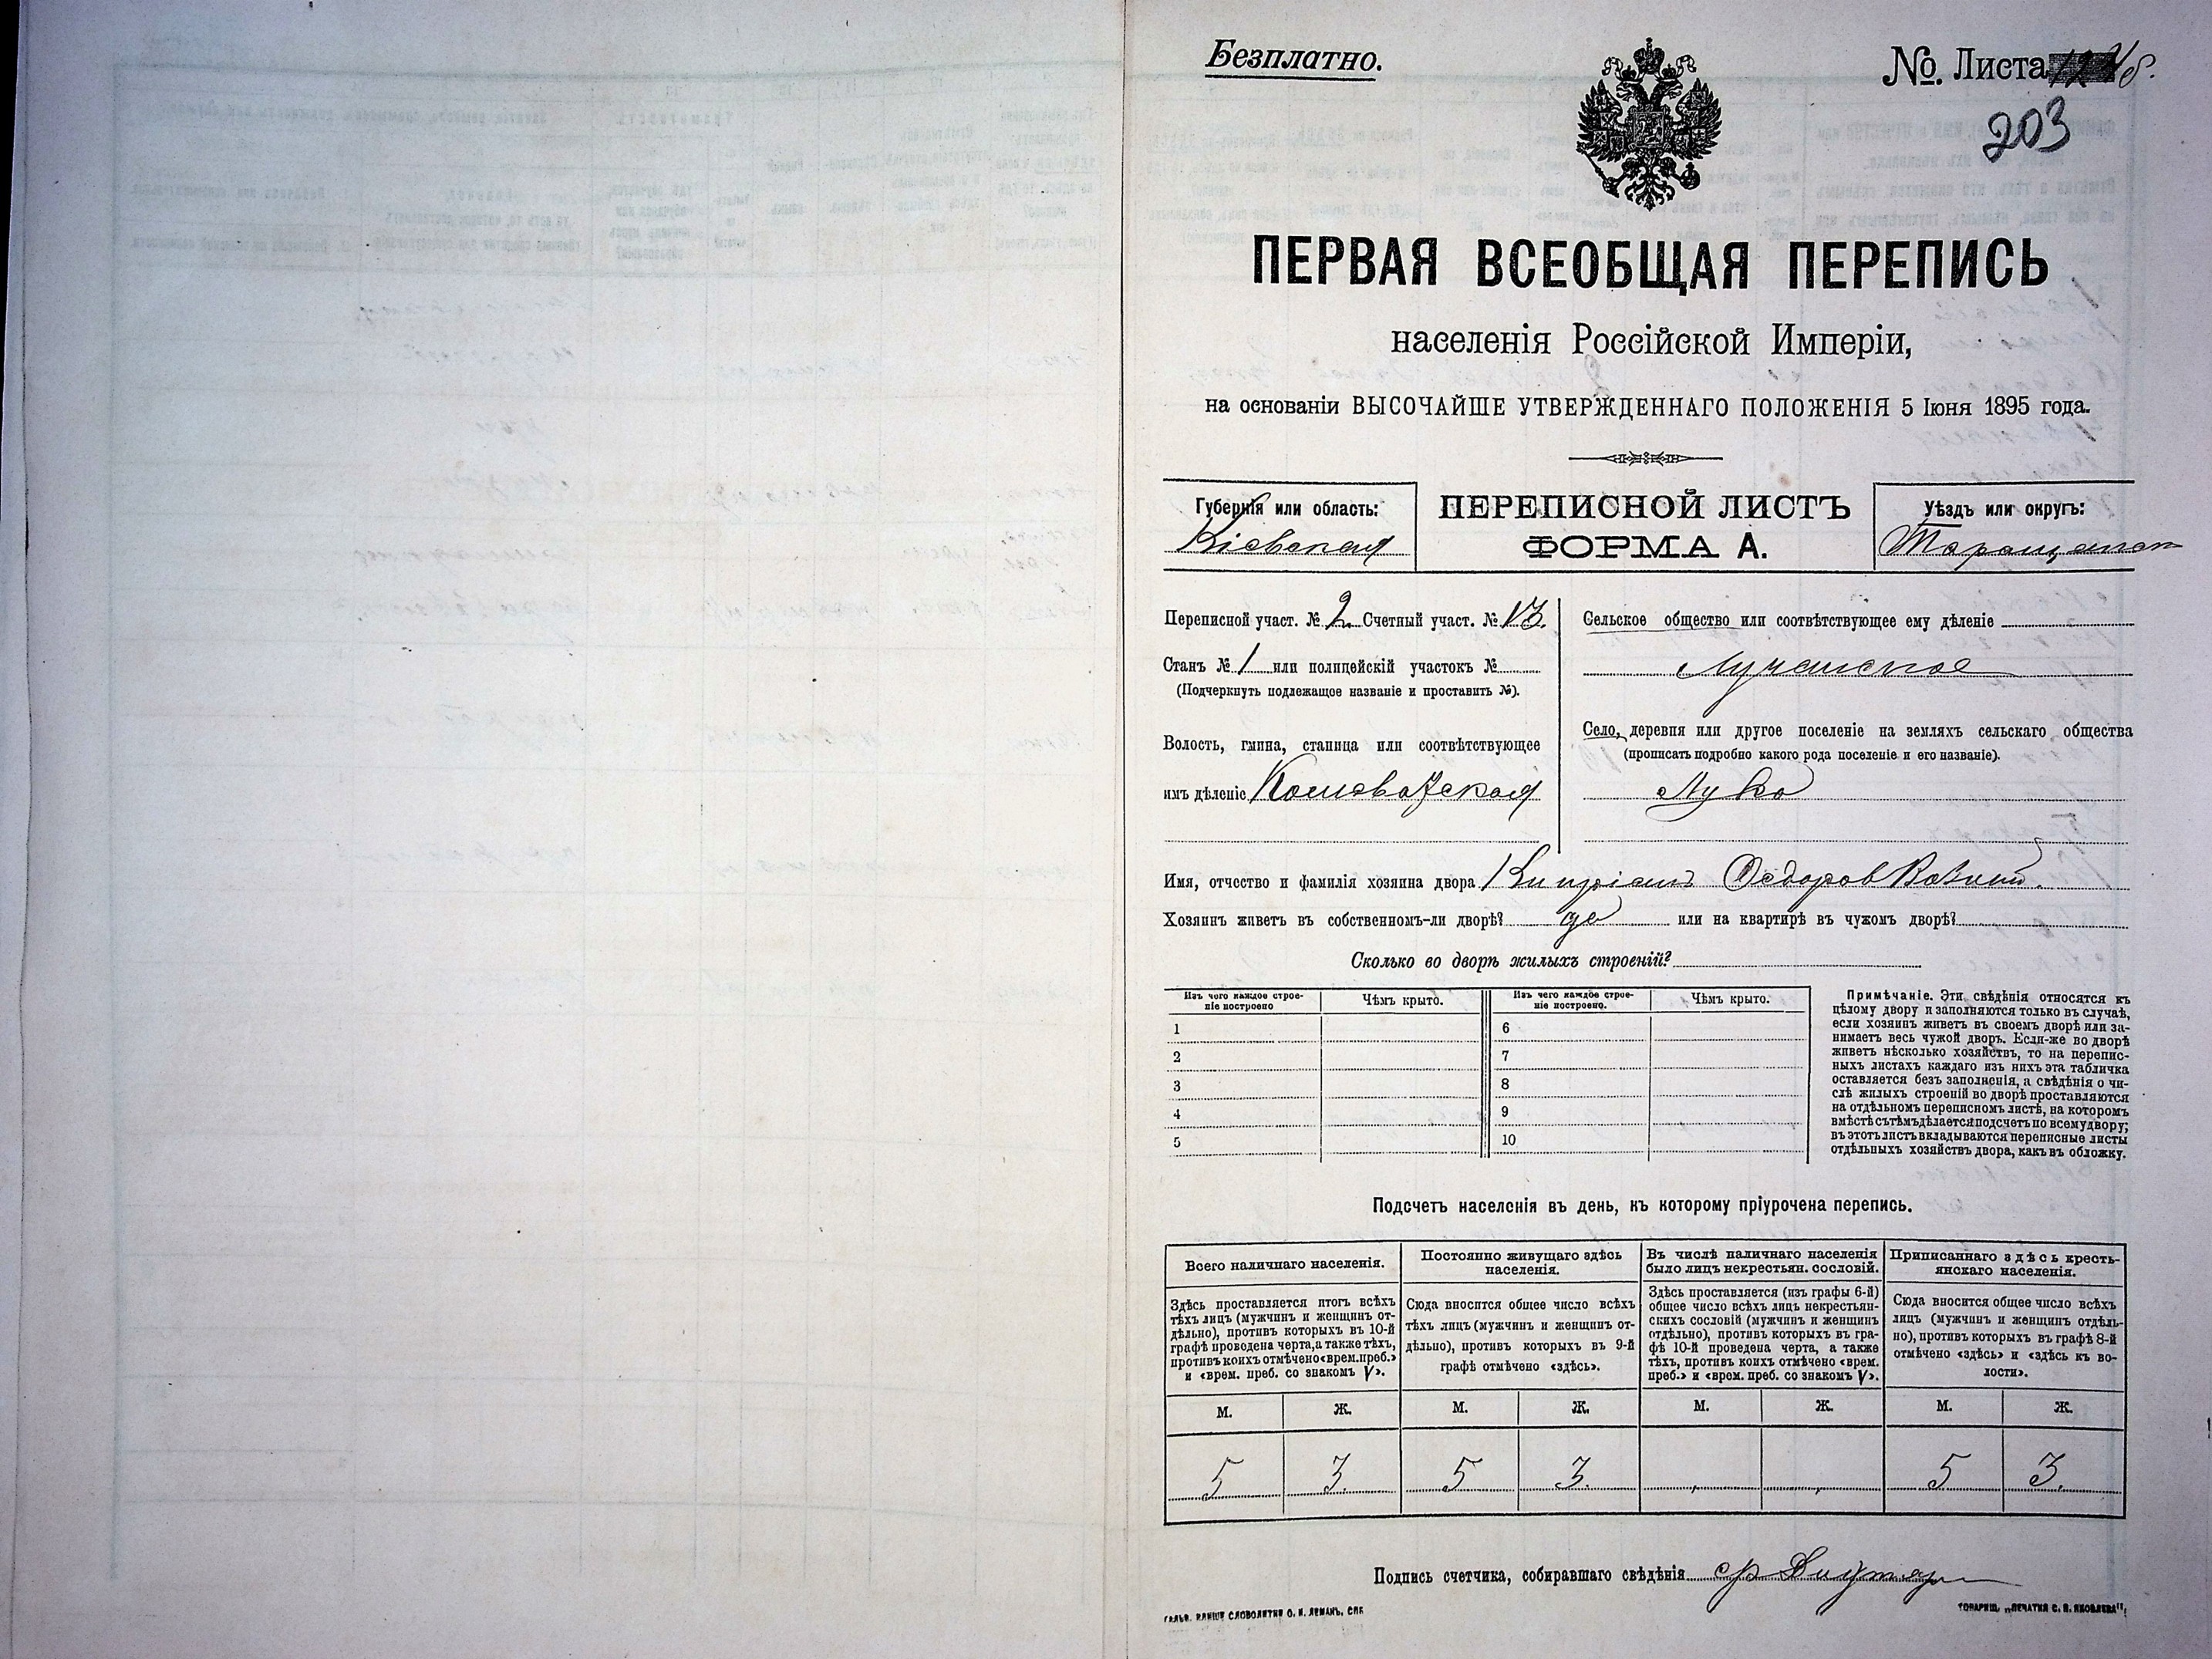 Безплатно.
№ Листа
203
ПЕРВАЯ ВСЕОБЩАЯ ПЕРЕПИСЬ
населенія Россійской Имперіи,
на основаніи ВЫСОЧАЙШЕ УТВЕРЖДЕННАГО ПОЛОЖЕНІЯ 5 Іюня 1895 года.
Губернія или область:
Кіевская
ПЕРЕПИСНОЙ ЛИСТЪ
ФОРМА А.
Уѣздъ или округъ:
Таращанск
Переписной участ. № 2 Счетный участ. № 13.
Станъ № 1 или полицейскій участокъ №
(Подчеркнуть подлежащее названіе и проставить №).
Волость, гмина, станица или соотвѣтствующее
имъ дѣленіе
Сельское общество или соотвѣтствующее ему дѣленіе
Лучанское
Село, деревня или другое поселеніе на земляхъ сельскаго общества
(прописать подробно какого рода поселеніе и его названіе).
Лука
Имя, отчество и фамилія хозяина двора Кипріанъ Федоров
Хозяинъ живетъ въ собственномъ-ли дворѣ? да или на квартирѣ въ чужомъ дворѣ?
Сколько во дворѣ жилыхъ строеній?
Изъ чего каждое строе-
ніе построено
Чѣмъ крыто.
Изъ чего каждое строе-
ніе построено.
Чѣмъ крыто.
1
6
2
7
3
8
4
9
5
10
Примѣчаніе. Эти свѣдѣнія относятся къ
цѣлому двору и заполняются только въ случаѣ,
если хозяинъ живетъ въ своемъ дворѣ или за-
нимаетъ весь чужой дворъ. Если-же во дворѣ
живетъ нѣсколько хозяйствъ, то на перепис-
ныхъ листахъ каждаго изъ нихъ эта табличка
оставляется безъ заполненія, а свѣдѣнія о чи-
слѣ жилыхъ строеній во дворѣ проставляются
на отдѣльномъ переписномъ листѣ, на которомъ
вмѣстѣ съ тѣмъ дѣлается подсчетъ по всему двору;
въ этотъ листъ вкладываются переписные листы
отдѣльныхъ хозяйствъ двора, какъ въ обложку.
Подсчетъ населенія въ день, къ которому пріурочена перепись.
Всего наличнаго населенія.
Здѣсь проставляется итогъ всѣхъ
тѣхъ лицъ (мужчинъ и женщинъ от-
дѣльно), противъ которыхъ въ 10-й
графѣ проведена черта, а также тѣхъ,
противъ коихъ отмѣчено «врем. преб.»
и «врем. преб. со знакомъ V».
Постоянно живущаго здѣсь
населенія.
Сюда вносится общее число всѣхъ
тѣхъ лицъ (мужчинъ и женщинъ от-
дѣльно), противъ которыхъ въ 9-й
графѣ отмѣчено «здѣсь».
Въ числѣ наличнаго населенія
было лицъ некрестьян. сословій.
Здѣсь проставляется (изъ графы 6-й)
общее число всѣхъ лицъ некрестьян-
скихъ сословій (мужчинъ и женщинъ
отдѣльно), противъ которыхъ въ гра-
фѣ 10-й проведена черта, а также
тѣхъ, противъ коихъ отмѣчено «врем.
преб.» и «врем. преб. со знакомъ V».
Приписаннаго здѣсь кресть-
янскаго населенія.
Сюда вносится общее число всѣхъ
лицъ (мужчинъ и женщинъ отдѣль-
но), противъ которыхъ въ графѣ 8-й
отмѣчено «здѣсь» и «здѣсь къ во-
лости».
М. Ж. М. Ж. М. Ж. М. Ж.
5 3. 5 3. 5 3.
Подпись счетчика, собиравшаго свѣдѣнія
ГАЛЬВ. КЛИШЕ СЛОВОЛИТНИ О. И. ЛЕМАНЪ, СПБ
ТОВАРИЩ. „ПЕЧАТНЯ С. П. ЯКОВЛЕВА"